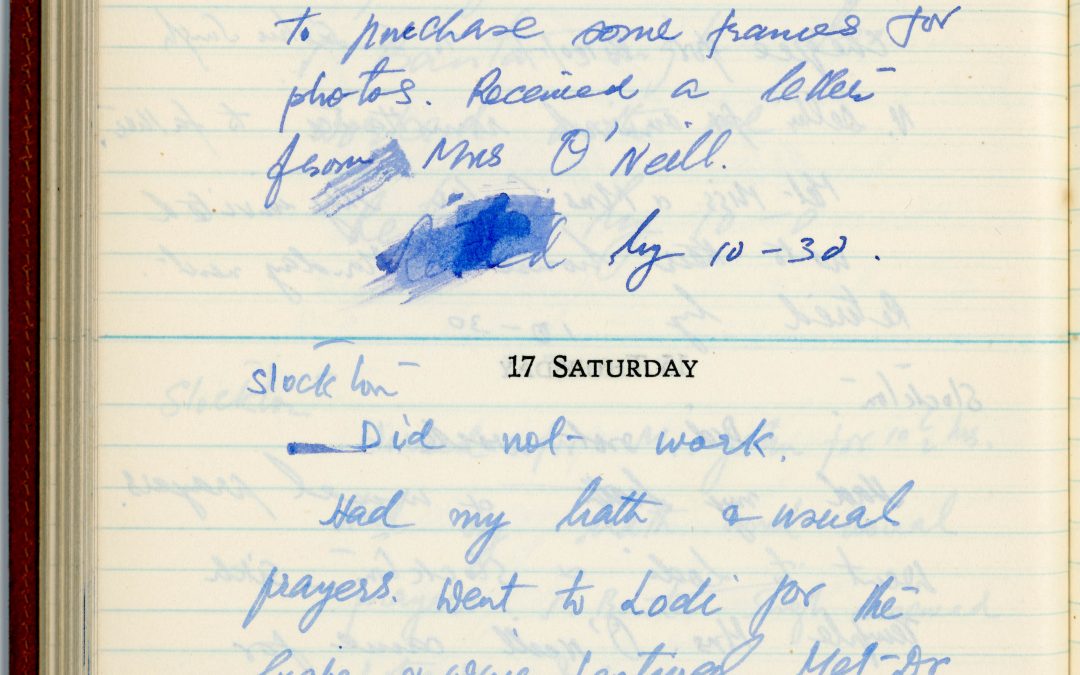 to purchase some frames for
photos. Received a letter
from Mrs O'Neill.
Retired by 10-30.
17 SATURDAY
Stockton
Did not work.
Had my bath & usual
prayers. Went to Lodi for the
Grape & wine festival. Met Dr